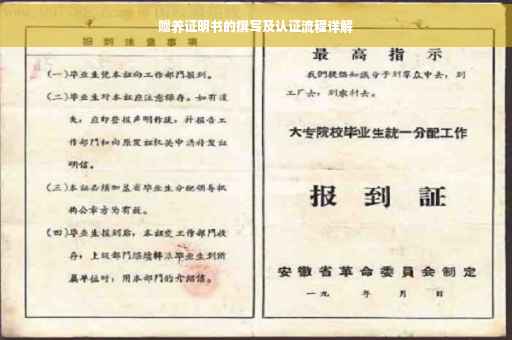 赡养证明书的撰写及认证流程详解
报到注意事项
(一)毕业生凭本证向工作部门报到。
(二)毕业生对本证应注意保存。如有遗
失,应即登报声明作废,并报告工
作部门和向原发证机关申请补发证
明信。
(三)本证必须加盖省毕业生分配领导机
构公章方为有效。
(四)毕业生报到后,本证交工作部门收
存;上级部门继续转派毕业生到所
属单位时,用本部门的介绍信。
最高指示
我们提倡知识分子到群众中去,到
工厂去,到农村去。
大专院校毕业生统一分配工作
报到证
安徽省革命委员会制定
一九 年 月 日